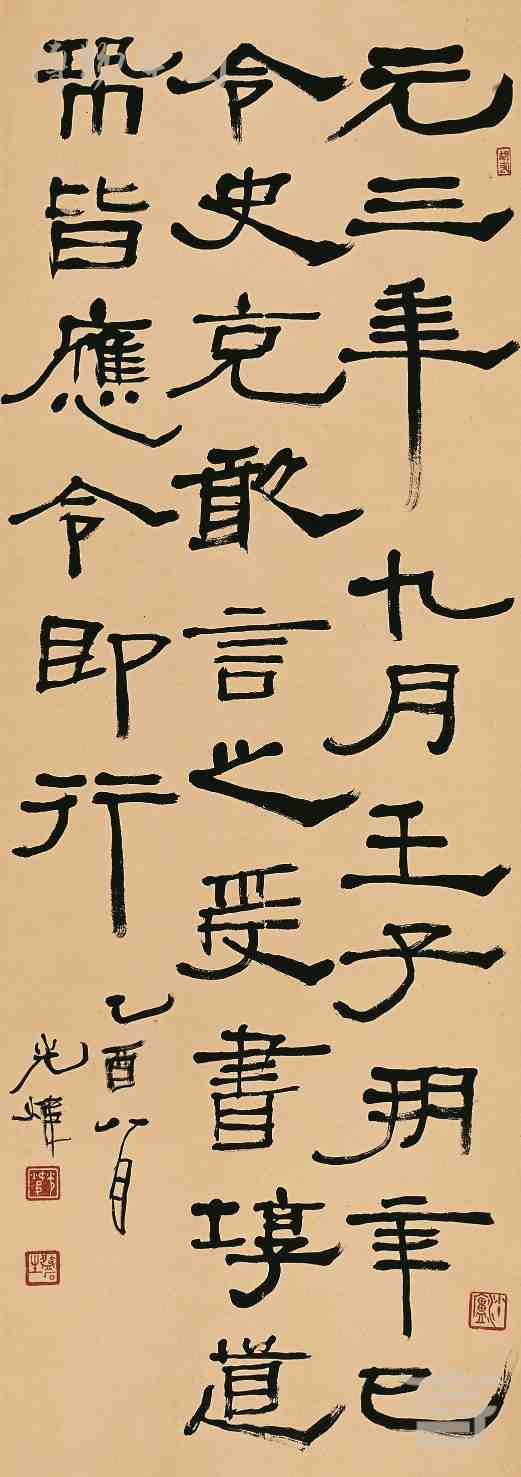 元三年九月壬子朔辛巳
令史充敢言之爰書埻道
皆應令即行
乙酉八月
光煒